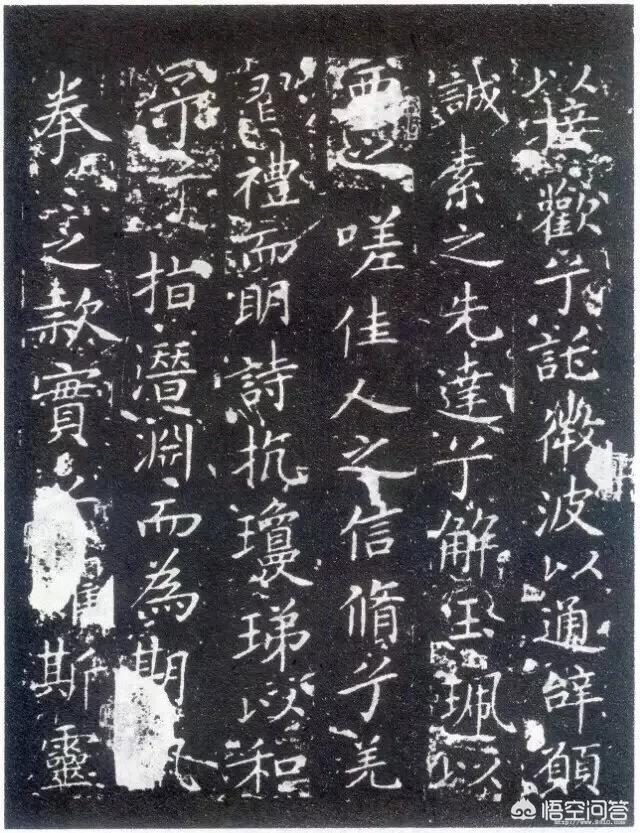 以接歡兮託微波以通辭願
誠素之先達兮解玉珮以
要之嗟佳人之信脩兮羌
習禮而明詩抗瓊珶以和
予兮指潛淵而為期執
拳之款實兮懼斯靈
悟空问答